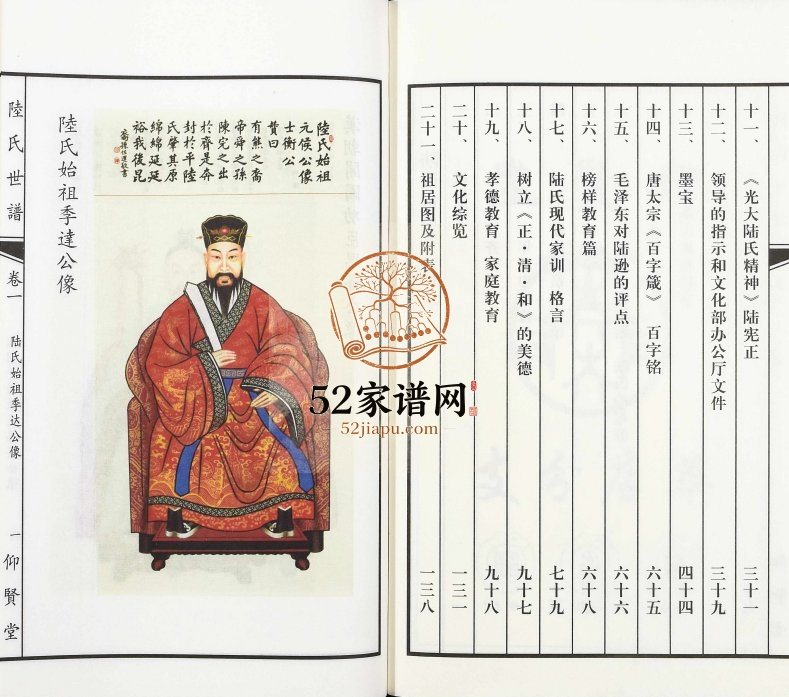 十一、《光大陆氏精神》陆宪正 三十一
十二、领导的指示和文化部办公厅文件 三十九
十三、墨宝 四十四
十四、唐太宗《百字箴》 百字铭 六十五
十五、毛泽东对陆逊的评点 六十六
十六、榜样教育篇 六十八
十七、陆氏现代家训 格言 七十九
十八、树立《正·清·和》的美德 九十七
十九、孝德教育 家庭教育 九十八
二十、文化综览 一三一
二十一、祖居图及附表 一三八
陸氏始祖
元侯公像
士衡公
贊曰
有熊之裔
帝舜之孫
陳完之出
於齊是奔
封於平陸
氏肇其原
綿綿延延
裕我後昆
陸氏始祖季達公像
陸氏世譜
卷一
陆氏始祖季达公像
一
仰賢堂
52家谱网
52jiapu.com